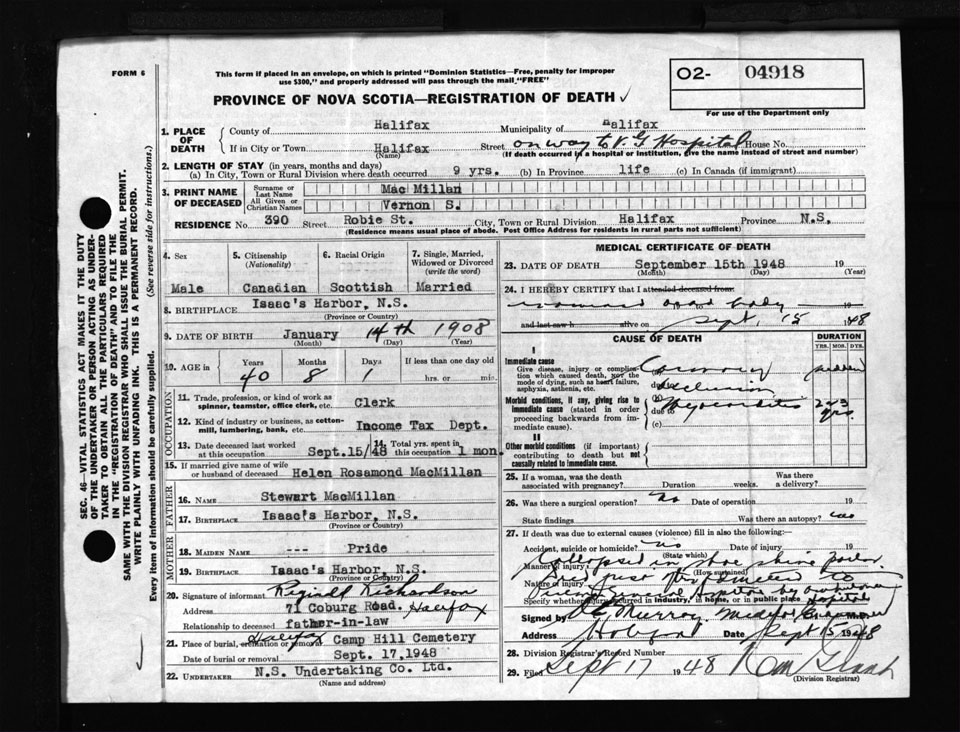 FORM 6
This form if placed in an envelope, on which is printed "Dominion Statistics—Free, penalty for improper
use $300," and properly addressed will pass through the mail "FREE"
O2- 04918
For use of the Department only
PROVINCE OF NOVA SCOTIA—REGISTRATION OF DEATH ✓
SEC. 46—VITAL STATISTICS ACT MAKES IT THE DUTY
OF THE UNDERTAKER OR PERSON ACTING AS UNDER-
TAKER TO OBTAIN ALL THE PARTICULARS REQUIRED
IN THE "REGISTRATION OF DEATH" AND TO FILE THE
SAME WITH THE DIVISION REGISTRAR WHO SHALL ISSUE THE BURIAL PERMIT.
WRITE PLAINLY WITH UNFADING INK. THIS IS A PERMANENT RECORD.
Every item of information should be carefully supplied. (See reverse side for instructions.)
1. PLACE OF DEATH
County of Halifax Municipality of Halifax
If in City or Town Halifax (Name) Street on way to V. G. Hospital House No.
(If death occurred in a hospital or institution, give the name instead of street and number)
2. LENGTH OF STAY (in years, months and days)
(a) In City, Town or Rural Division where death occurred 9 yrs. (b) In Province life (c) In Canada (if immigrant)
3. PRINT NAME OF DECEASED
Surname or Last Name Mac Millan
All Given or Christian Names Vernon S.
RESIDENCE No 390 Street Robie St. City, Town or Rural Division Halifax Province N.S.
(Residence means usual place of abode. Post Office Address for residents in rural parts not sufficient)
4. Sex
Male
5. Citizenship (Nationality)
Canadian
6. Racial Origin
Scottish
7. Single, Married, Widowed or Divorced (write the word)
Married
8. BIRTHPLACE Isaac's Harbor, N.S.
(Province or Country)
9. DATE OF BIRTH January 14th 1908
(Month) (Day) (Year)
10. AGE in Years Months Days If less than one day old
40 8 1 hrs. or min.
OCCUPATION
11. Trade, profession, or kind of work as
spinner, teamster, office clerk, etc. Clerk
12. Kind of industry or business, as cotton-
mill, lumbering, bank, etc. Income Tax Dept.
13. Date deceased last worked
at this occupation Sept.15/48
14. Total yrs. spent in
this occupation 1 mon.
15. If married give name of wife
or husband of deceased Helen Rosamond MacMillan
FATHER
16. NAME Stewart MacMillan
17. BIRTHPLACE Isaac's Harbor, N.S.
(Province or Country)
MOTHER
18. MAIDEN NAME --- Pride
19. BIRTHPLACE Isaac's Harbor, N.S.
(Province or Country)
20. Signature of informant Reginald Richardson
Address 71 Coburg Road. Halifax
Relationship to deceased father-in-law
21. Place of burial, cremation or removal Halifax Camp Hill Cemetery
Date of burial or removal Sept. 17,1948
22. UNDERTAKER N.S. Undertaking Co. Ltd.
(Name and address)
MEDICAL CERTIFICATE OF DEATH
23. DATE OF DEATH September 15th 1948
(Month) (Day) (Year)
24. I HEREBY CERTIFY that I attended deceased from:
dead body 19
and last saw h alive on Sept, 15 1948
CAUSE OF DEATH DURATION
YRS. MOS. DYS.
I
Immediate cause
Give disease, injury or complica-
tion which caused death, not the
mode of dying, such as heart failure,
asphyxia, asthenia, etc.
(a) Coronary sudden
due to occlusion
Morbid conditions, if any, giving rise to
immediate cause (stated in order
proceeding backwards from im-
mediate cause).
(b) Myocarditis
due to
(c)
yrs
II
Other morbid conditions (if important)
contributing to death but not
causally related to immediate cause.
25. If a woman, was the death
associated with pregnancy? Duration weeks. Was there
a delivery?
26. Was there a surgical operation? no Date of operation 19
State findings Was there an autopsy? no
27. If death was due to external causes (violence) fill in also the following:—
Accident, suicide or homicide? no Date of injury 19
(State which)
Manner of injury Collapsed in shoe shine parlor.
(How sustained)
Nature of injury Died just to
Victoria General Hospital by
Specify whether injury occurred in industry, in home, or in public place. Hospital
Signed by Murray Medical Examiner M.D.
Address Date Sept 15 1948
28. Division Registrar's Record Number
29. Filed Sept 17 1948
(Division Registrar)